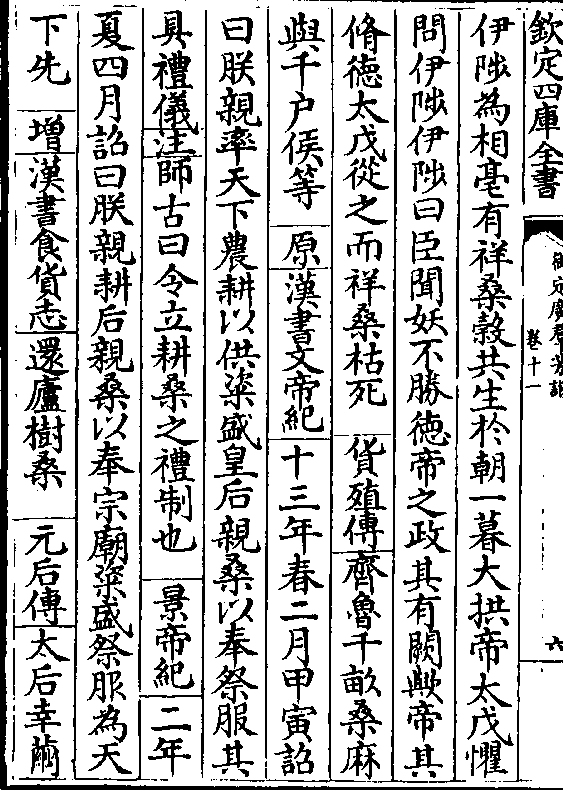 欽定四庫全書
御定廣羣芳譜
卷十一
六
伊陟為相亳有祥桑榖共生於朝一暮大拱帝太戊懼
問伊陟伊陟曰臣聞妖不勝德帝之政其有闕歟帝其
脩德太戊從之而祥桑枯死 貨殖傳齊魯千畝桑麻
與千户侯等 原漢書文帝紀十三年春二月甲寅詔
曰朕親率天下農耕以供粢盛皇后親桑以奉祭服其
具禮儀注師古曰令立耕桑之禮制也 景帝紀二年
夏四月詔曰朕親耕后親桑以奉宗廟粢盛祭服為天
下先 增漢書食貨志還廬樹桑 元后傳太后幸繭